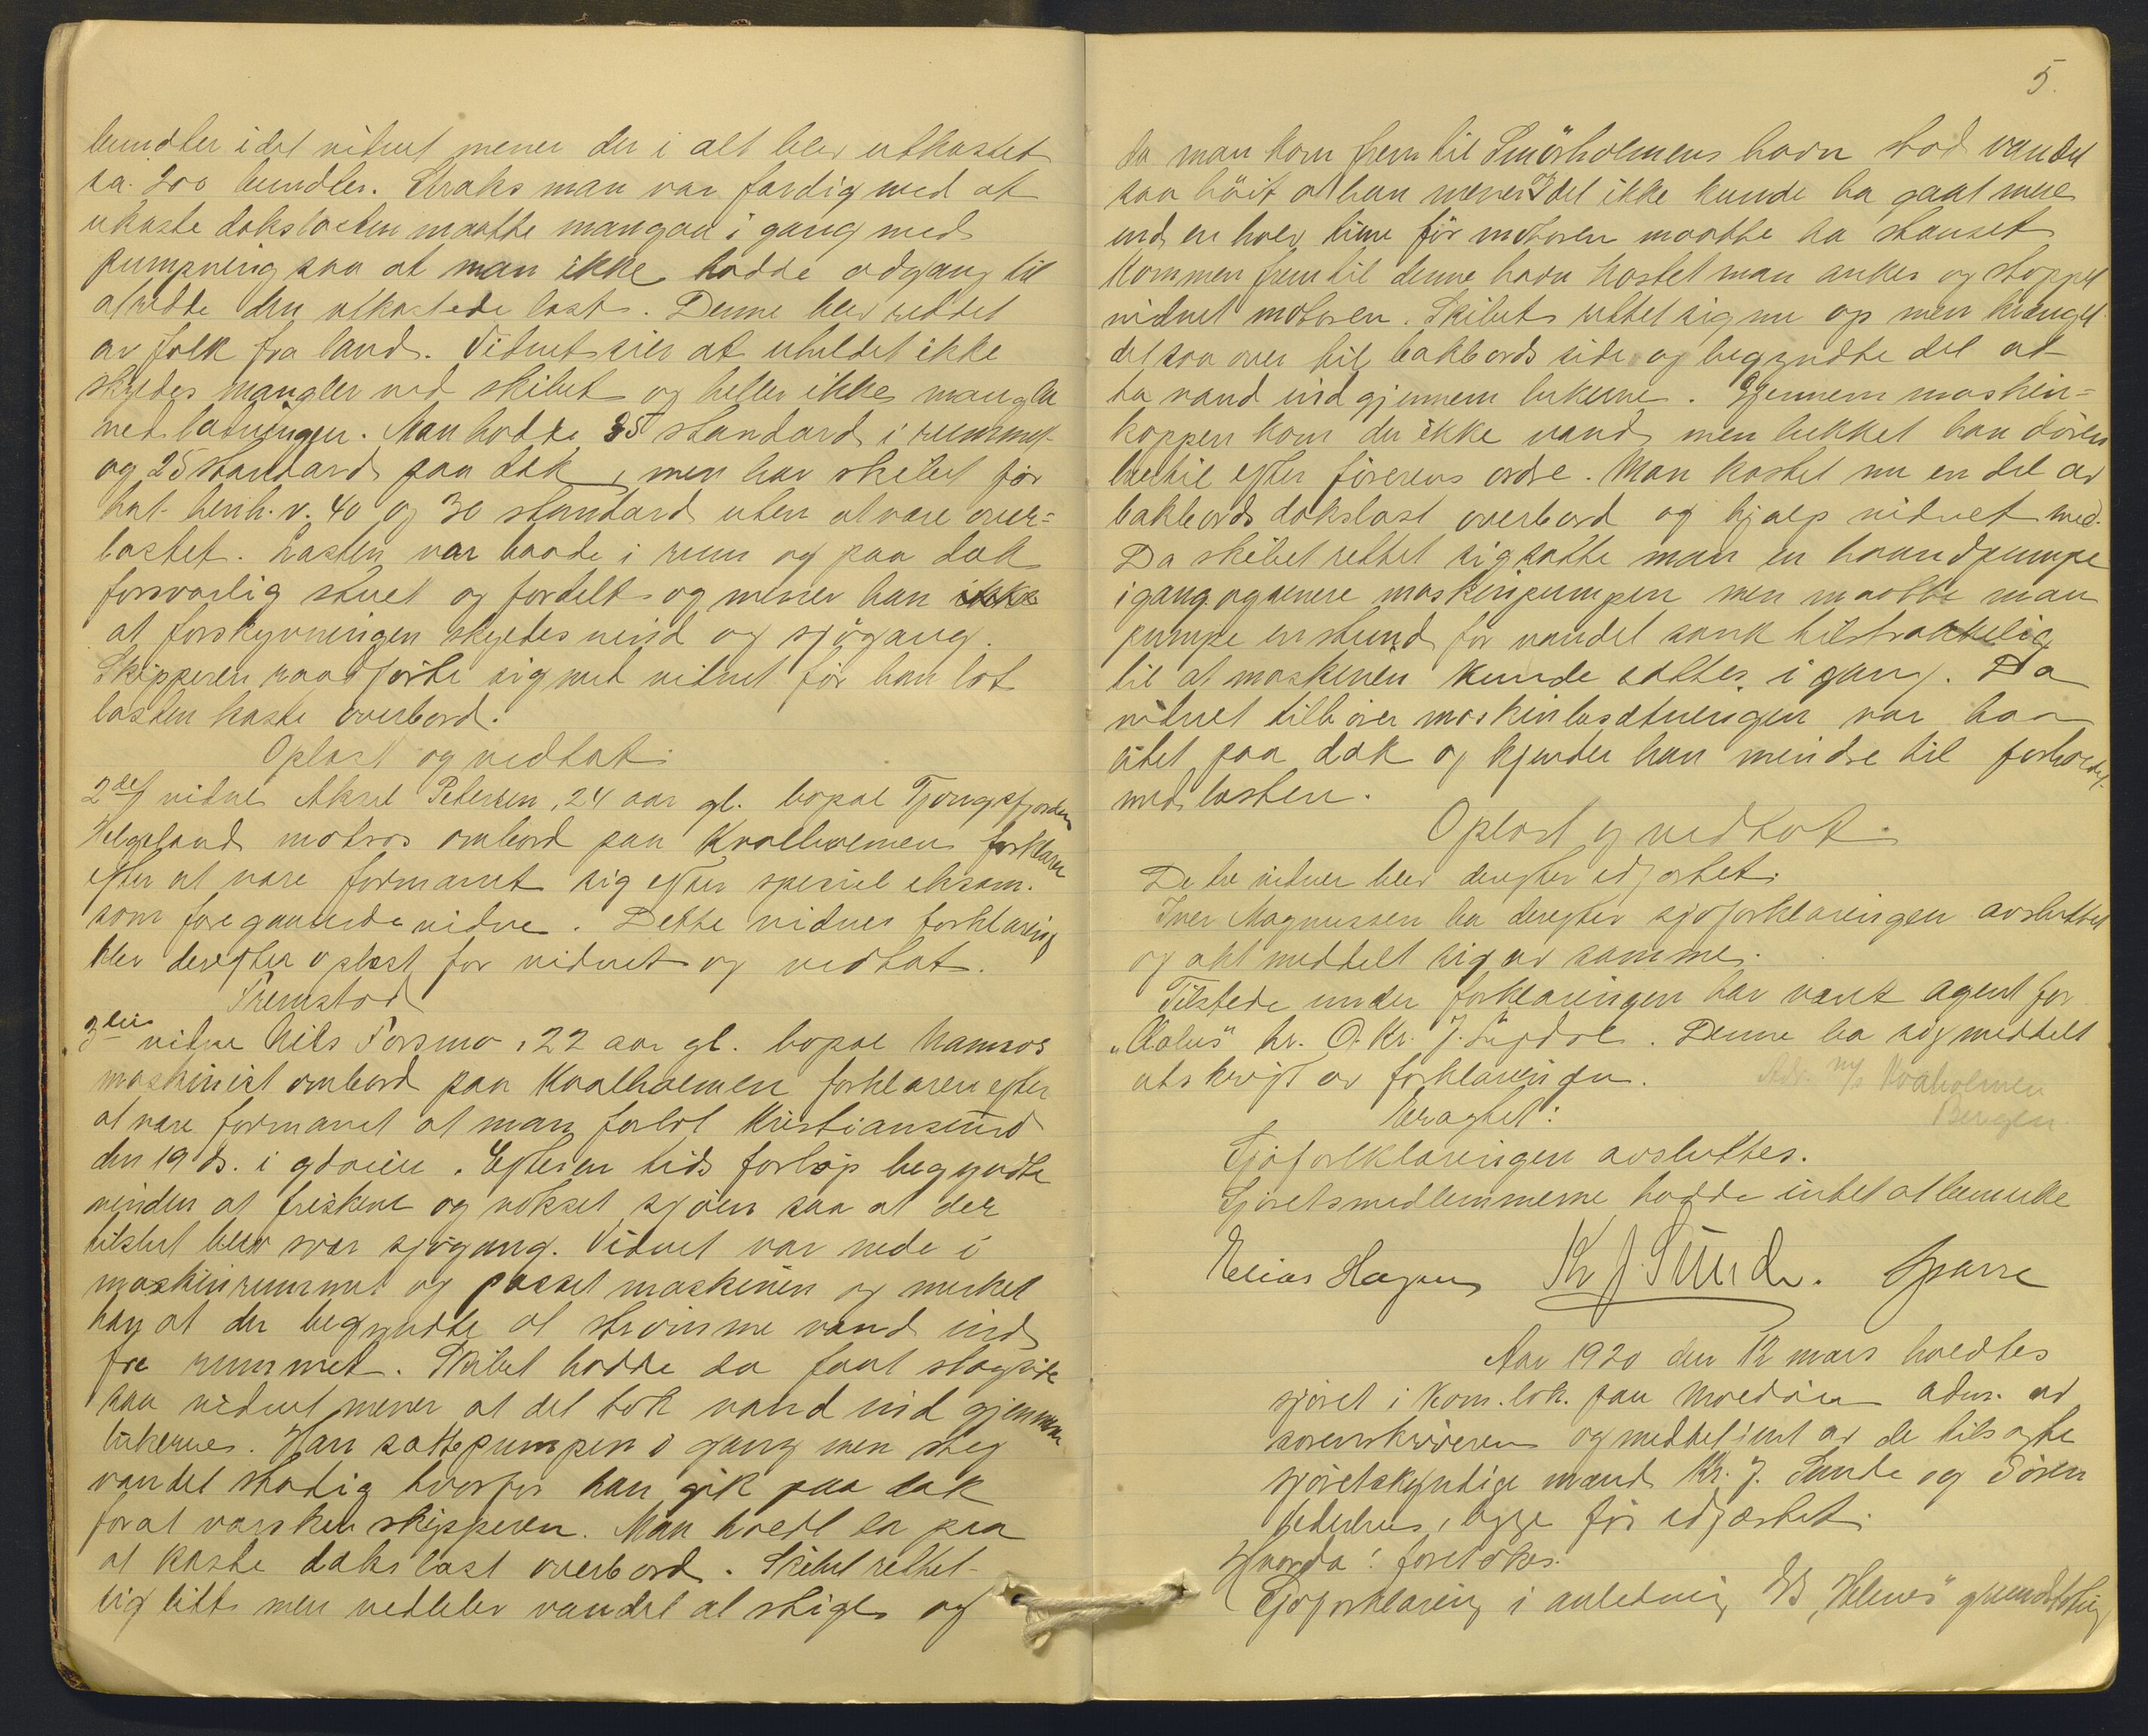 bundter idet vidnet mener der i alt blev utkastet
ca. 200 bundter. Straks man var færdig med at
utkaste dækslasten maatte man gaa i gang med
pumpning saa at man ikke hadde adgang til
at redde den utkastede last. Denne blev reddet
av folk fra land. Vidnet sier at uheldet ikke
skyldes mangler ved skibet og heller ikke mangler
ved ladningen. Man hadde 35 standard i rummet
og 25 standard paa dæk, men har skibet før
hat henh. v. 40 og 30 standard uten at være over=
lastet. Lasten var baade i rum og paa dæk
forsvarlig stuet og fordelt og mener han
at forskyvningen skyldes vind og sjøgang.
Skipperen raadførte sig med vidnet før han lot
lasten kaste overbord.
Oplæst og vedtat.
2det vidne Aksel Petersen, 24 aar gl. bopæl Tjongsfjorden
Helgeland matros ombord paa Kvalholmen forklarer
efter at være formanet sig efter speciel eksam.
som foregaaende vidne. Dette vidnes forklaring
blev derefter oplæst for vidnet og vedtat.
Fremstod
3die vidne Nils Forsmo, 22 aar gl. bopæl Namsos
maskinist ombord paa Kvalholmen forklarer efter
at være formanet at man forlot Kristiansund
den 19 ds. i godveir. Efter en tids forløp begyndte
vinden at friskne og vokset sjøen saa at der
tilslut blev svær sjøgang. Vidnet var nede i
maskinrummet og passet maskinen og merket
han at der begyndte at strømme vand ind
fra rummet. Skibet hadde da faat slagside
saa vidnet mener at det tok vand ind gjennem
lukerne. Han satte pumpen i gang men steg
vandet stadig hvorfor han gik paa dæk
forat varsku skipperen. Man holdt da paa
at kaste dækslast overbord. Skibet rettet
sig litt men vedblev vandet at stige og
5.
da man kom frem til Smörholmens havn stod vandet
saa høit at han mener det ikke kunde ha gaat mere
end en halv time før motoren maatte ha stanset.
Kommen frem til denne havn kastet man anker og stoppet
vidnet motoren. Skibet rettet sig nu op men krænget
det saa over til bakbords side og begyndte det at
ta vand ind gjennem lukerne. Gjennem maskin=
kappen kom der ikke vand men lukket han døren
hertil efter førerens ordre. Man kastet nu en del av
bakbords dækslast overbord og hjalp vidnet med.
Da skibet rettet sig satte man en haandpumpe
igang og senere maskinpumpen men maatte man
pumpe en stund før vandet sank tilstrækkelig
til at maskinen kunde sættes i gang. Da
vidnet tilhører maskinbesætningen var han
litet paa dæk og kjender han mindre til forholdet
med lasten.
Oplæst og vedtat.
De tre vidner blev derefter edfæstet.
Iver Magnussen ba derefter sjøforklaringen avsluttet
og akt meddelt sig av samme.
Tilstede under forklaringen har været agent for
"Æolus" hr. O. Kr. J. . Denne ba sig meddelt
utskrift av forklaringen.
Adr. m/s Kvalholmen
Bergen
Eragtet:
Sjøforklaringen avsluttes.
Sjøretsmedlemmerne hadde intet at bemerke
Elias Hagen Kr J. Sunde. Sparre
Aar 1920 den 12 mars holdtes
sjøret i kom. lok. paa Moldøen adm. av
sorenskriveren og meddomt av de tilsagte
sjøretskyndige mænd Kr. J. Sunde og Søren
Pedersen, begge før edfæstet.
Hvorda: foretokes:
Sjøforklaring i anledning D/S "Helenes" grundstøtning